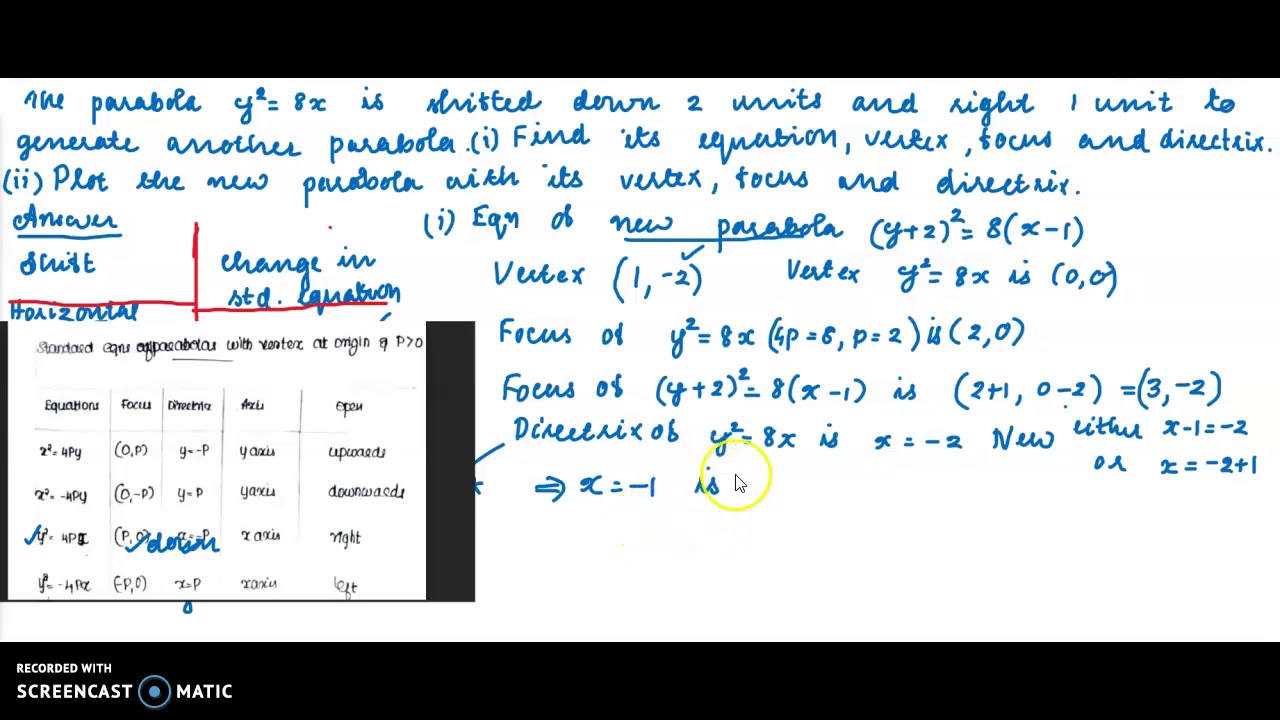 The parabola y² = 8x is shifted down 2 units and right 1 unit to
generate another parabola. (i) Find its equation, vertex, focus and directrix.
(ii) Plot the new parabola with its vertex, focus and directrix.
Answer
Shift
change in
std. equation
Horizontal
(i) Eqn of new parabola (y+2)² = 8(x-1)
Vertex (1, -2) Vertex y² = 8x is (0,0)
Focus of y² = 8x (4p=8, p=2) is (2,0)
Focus of (y+2)² = 8(x-1) is (2+1, 0-2) = (3,-2)
Directrix of y² = 8x is x = -2 New either x-1=-2
or x = -2+1
⇒ x = -1 is
Standard eqns of parabolas with vertex at origin & P>0
Equations Focus Directrix Axis open
x²=4Py (0,P) y=-P y axis upwards
x²=-4Py (0,-P) y=P y axis downwards
y²=4Px (P,0) x=-P x axis right
y²=-4Px (-P,0) x=P x axis left
RECORDED WITH
SCREENCAST MATIC